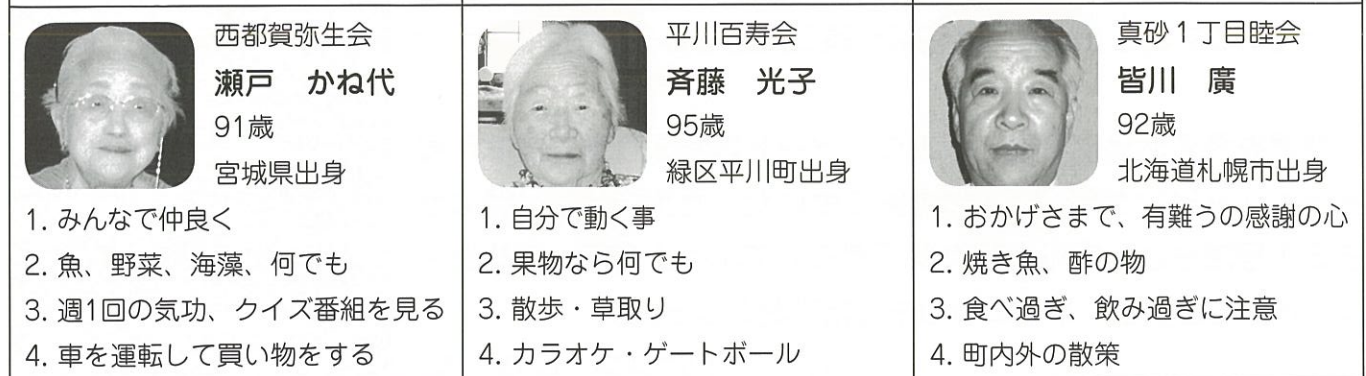 西都賀弥生会
瀬戸　かね代
91歳
宮城県出身
1. みんなで仲良く
2. 魚、野菜、海藻、何でも
3. 週1回の気功、クイズ番組を見る
4. 車を運転して買い物をする
平川百寿会
斉藤　光子
95歳
緑区平川町出身
1. 自分で動く事
2. 果物なら何でも
3. 散歩・草取り
4. カラオケ・ゲートボール
真砂１丁目睦会
皆川　廣
92歳
北海道札幌市出身
1. おかげさまで、有難うの感謝の心
2. 焼き魚、酢の物
3. 食べ過ぎ、飲み過ぎに注意
4. 町内外の散策